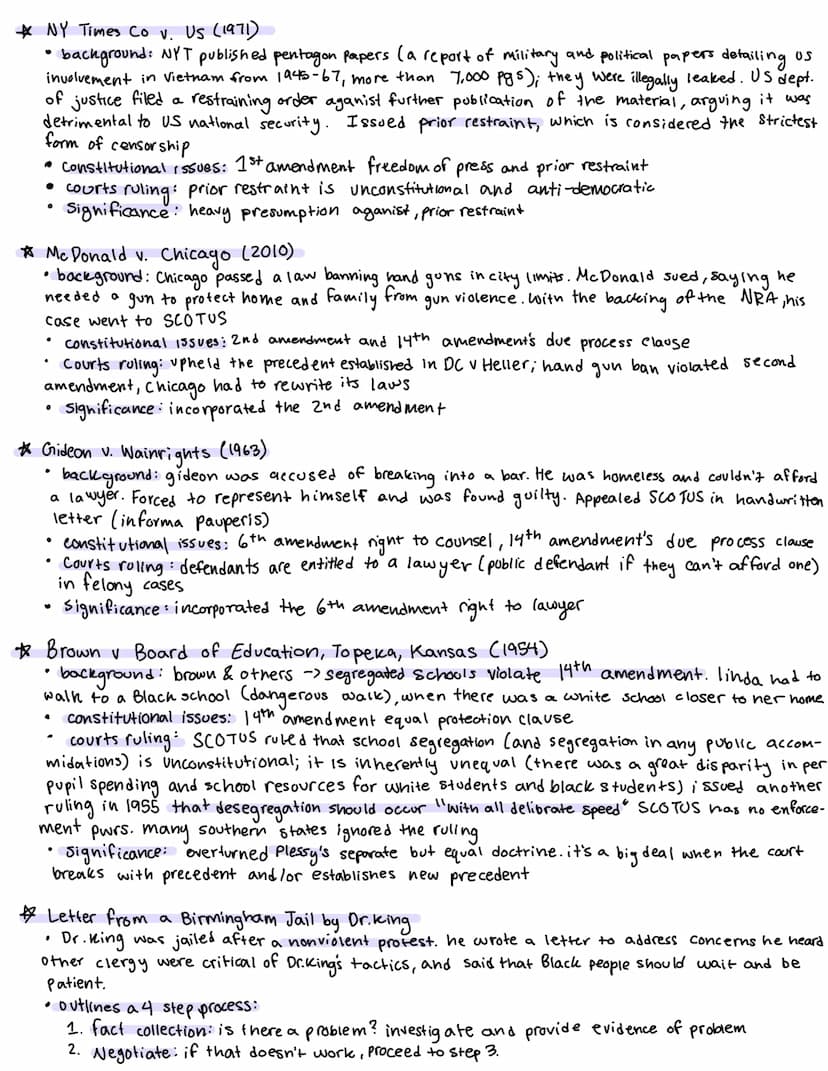 ☆ NY Times Co v. Us (1971)
• background: NYT published pentagon papers (a report of military and political papers detailing US
involvement in vietnam from 1945-67, more than 7,000 pgs); they were illegally leaked. US dept.
of justice filed a restraining order aganist further publication of the material, arguing it was
detrimental to US national security. Issued prior restraint, which is considered the strictest
form of censorship
• constitutional issues: 1st amendment freedom of press and prior restraint
• courts ruling: prior restraint is unconstitutional and anti-democratic
• Significance: heavy presumption aganist, prior restraint
☆ McDonald v. Chicago (2010)
• background: Chicago passed a law banning hand guns in city limits. McDonald sued, saying he
needed a gun to protect home and family from gun violence. with the backing of the NRA, his
case went to SCOTUS
• constitutional issues: 2nd amendment and 14th amendment's due process clause
• courts ruling: upheld the precedent established in DC v Heller; hand gun ban violated second
amendment, chicago had to rewrite its laws
• significance: incorporated the 2nd amendment
☆ Gideon v. Wainrights (1963)
• background: gideon was accused of breaking into a bar. He was homeless and couldn't afford
a lawyer. Forced to represent himself and was found guilty. Appealed SCOTUS in handwritten
letter (informa pauperis)
• constitutional issues: 6th amendment right to counsel, 14th amendment's due process clause
• courts ruling: defendants are entitled to a lawyer (public defendant if they can't afford one)
in felony cases
• significance: incorporated the 6th amendment right to lawyer
☆ Brown v Board of Education, Topeka, Kansas (1954)
• background: brown & others -> segregated schools violate 14th amendment. linda had to
walk to a Black school (dangerous walk), when there was a white school closer to her home
• constitutional issues: 14th amendment equal protection clause
• courts ruling: SCOTUS ruled that school segregation (and segregation in any public accom-
midations) is unconstitutional; it is inherently unequal (there was a great disparity in per
pupil spending and school resources for white students and black students) issued another
ruling in 1955 that desegregation should occur "with all delibrate speed" SCOTUS has no enforce-
ment pwrs. many southern states ignored the ruling
• significance: overturned Plessy's separate but equal doctrine. it's a big deal when the court
breaks with precedent and/or establishes new precedent
☆ Letter from a Birmingham Jail by Dr. King
• Dr. King was jailed after a nonviolent protest. he wrote a letter to address concerns he heard
other clergy were critical of Dr.King's tactics, and said that Black people should wait and be
patient.
• outlines a 4 step process:
1. fact collection: is there a problem? investigate and provide evidence of problem
2. Negotiate: if that doesn't work, proceed to step 3.